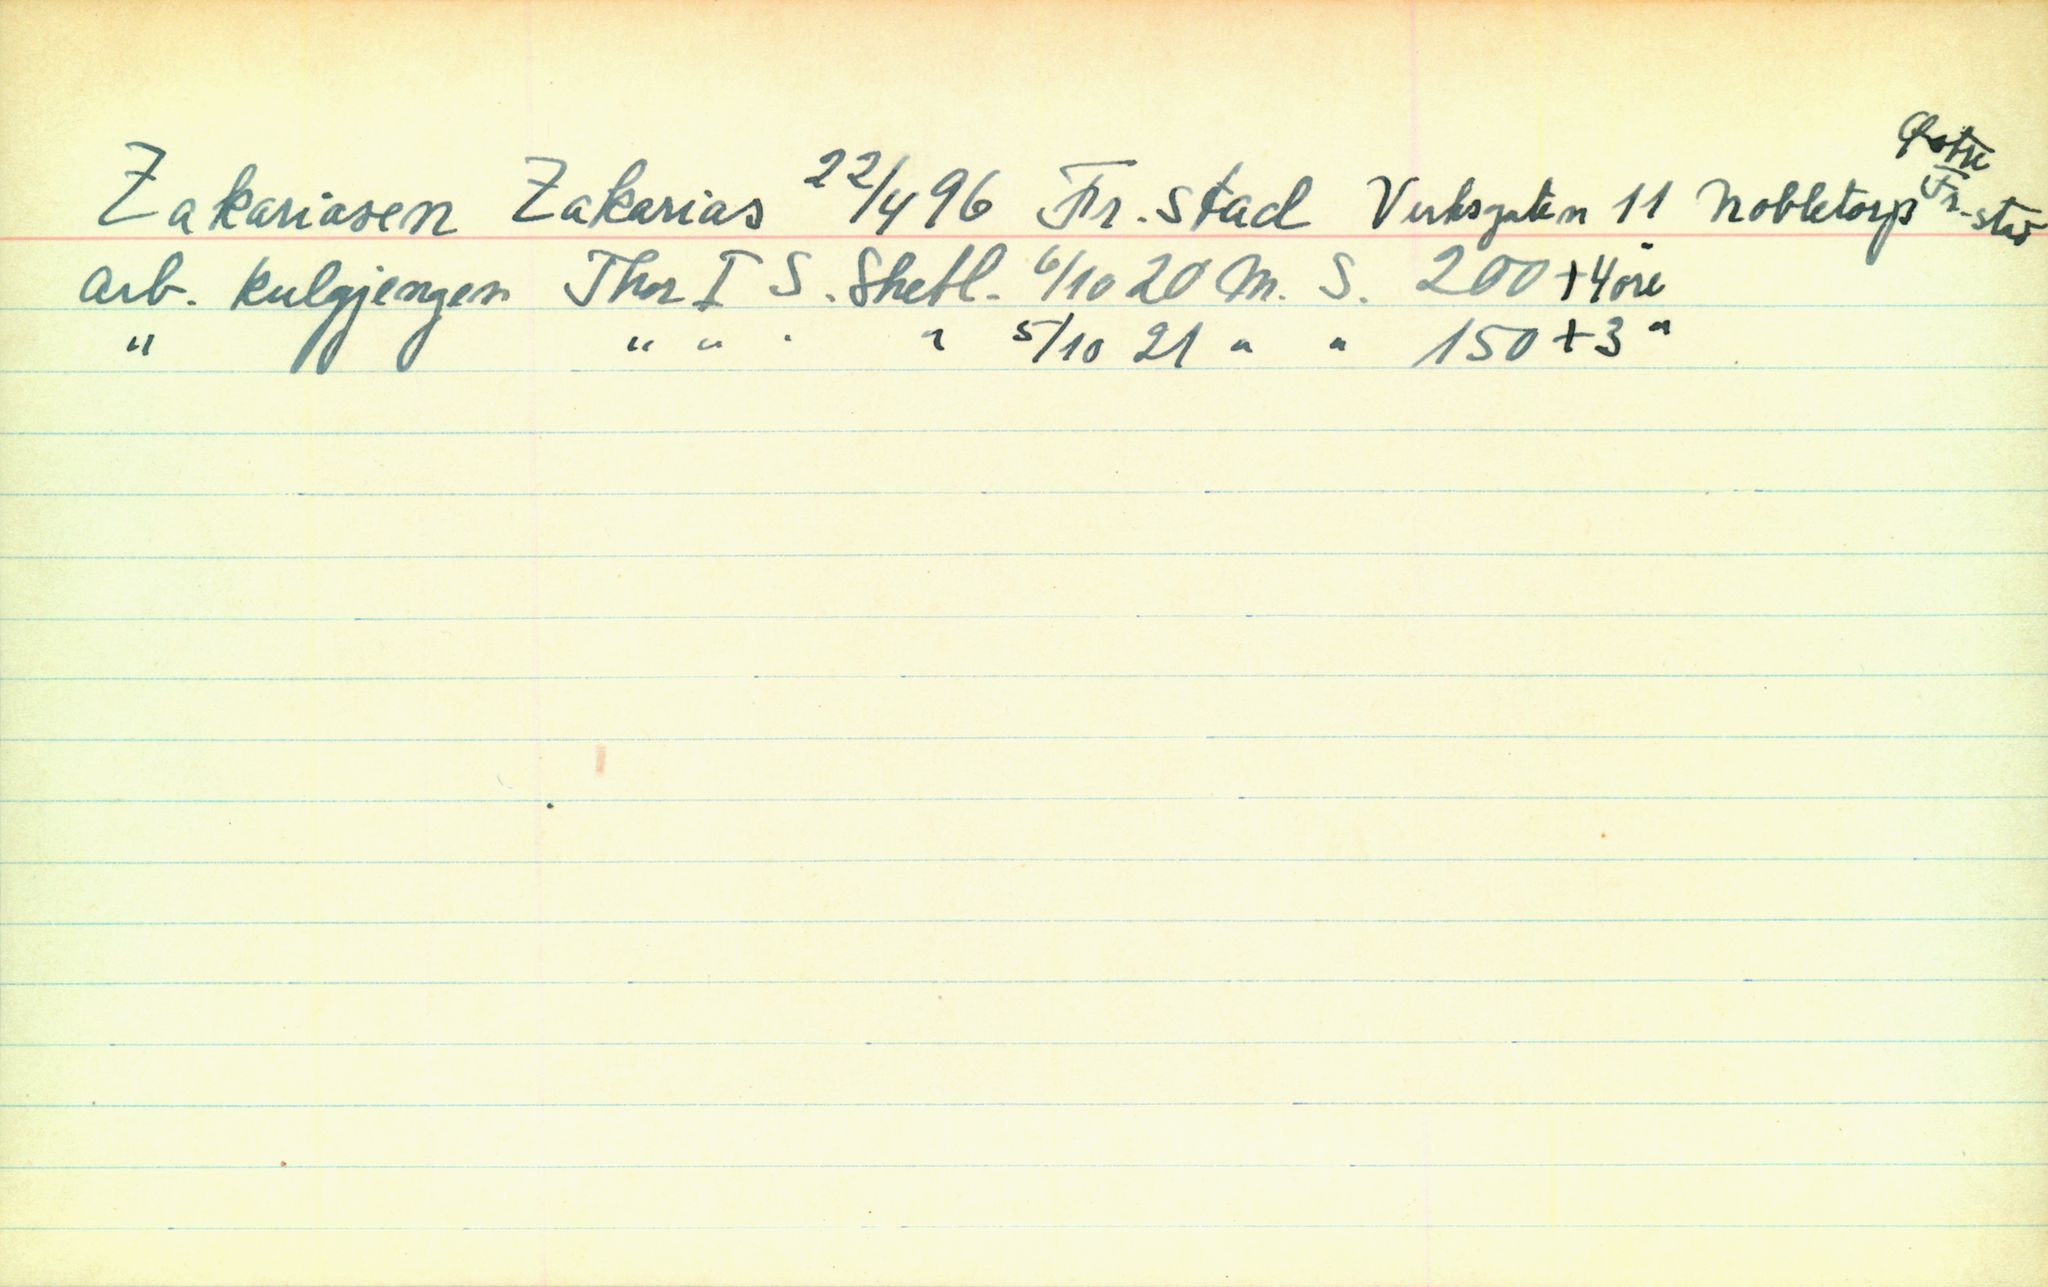 Zakariasen Zakarias 22/4 96 Fr. stad Verksgaten 11 Nobletorp Østre Fr. stad
arb. kulgjengen Thor I S. Shetl. 6/10 20 M. S. 200 + 4 øre
" " " " " 5/10 21 " " 150 + 3 "